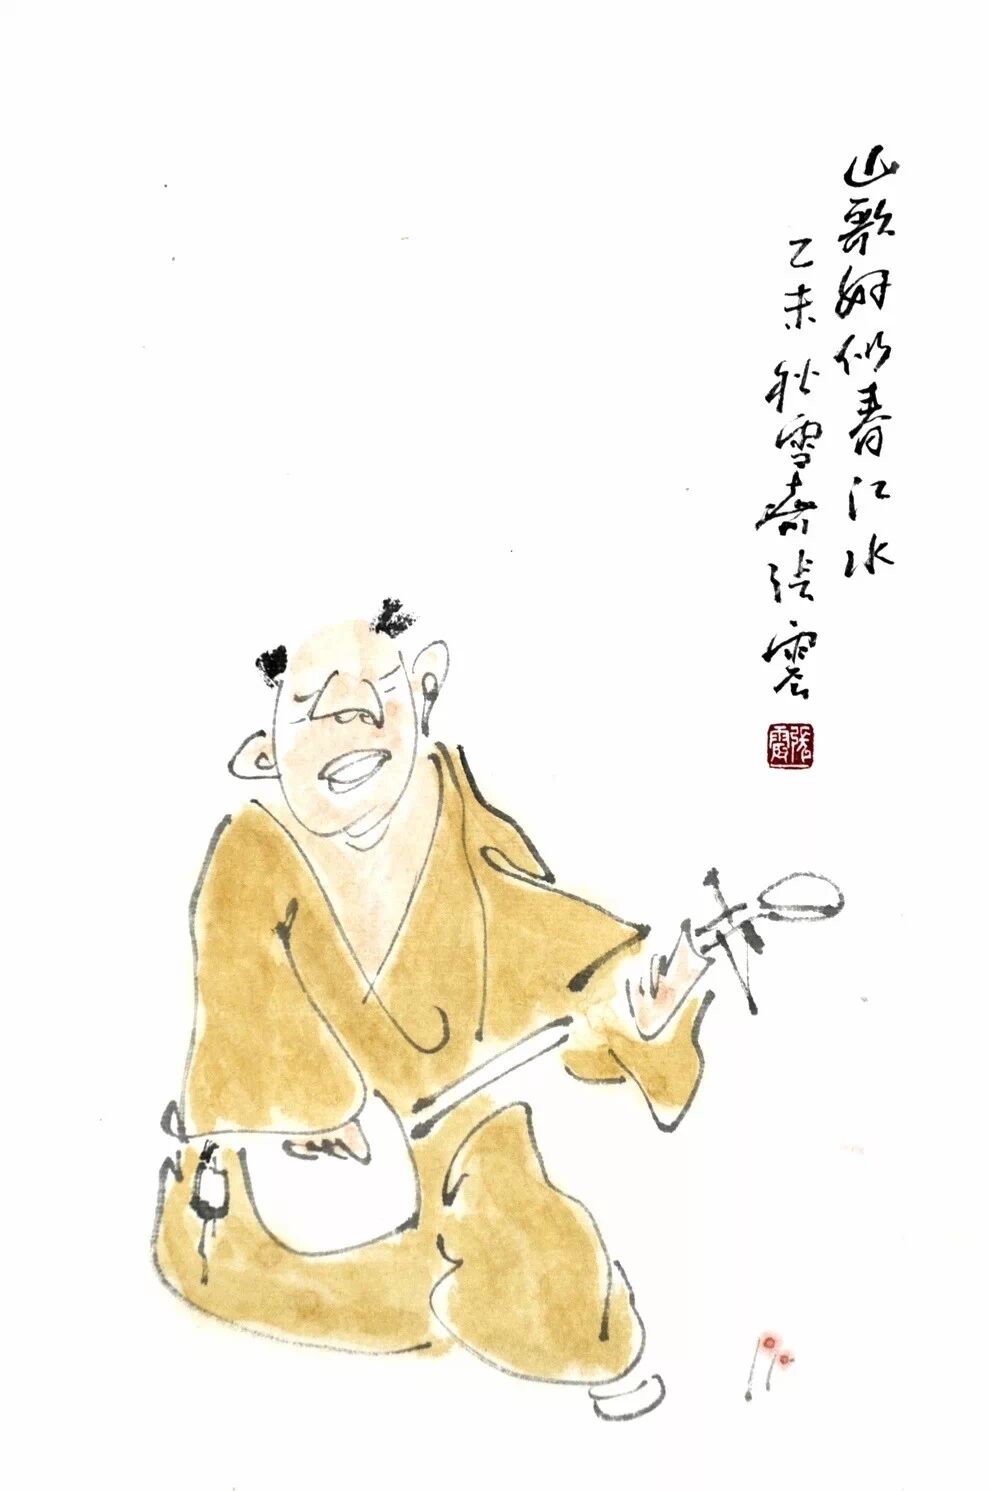 山歌好似春江水
乙未秋雪斋张雲